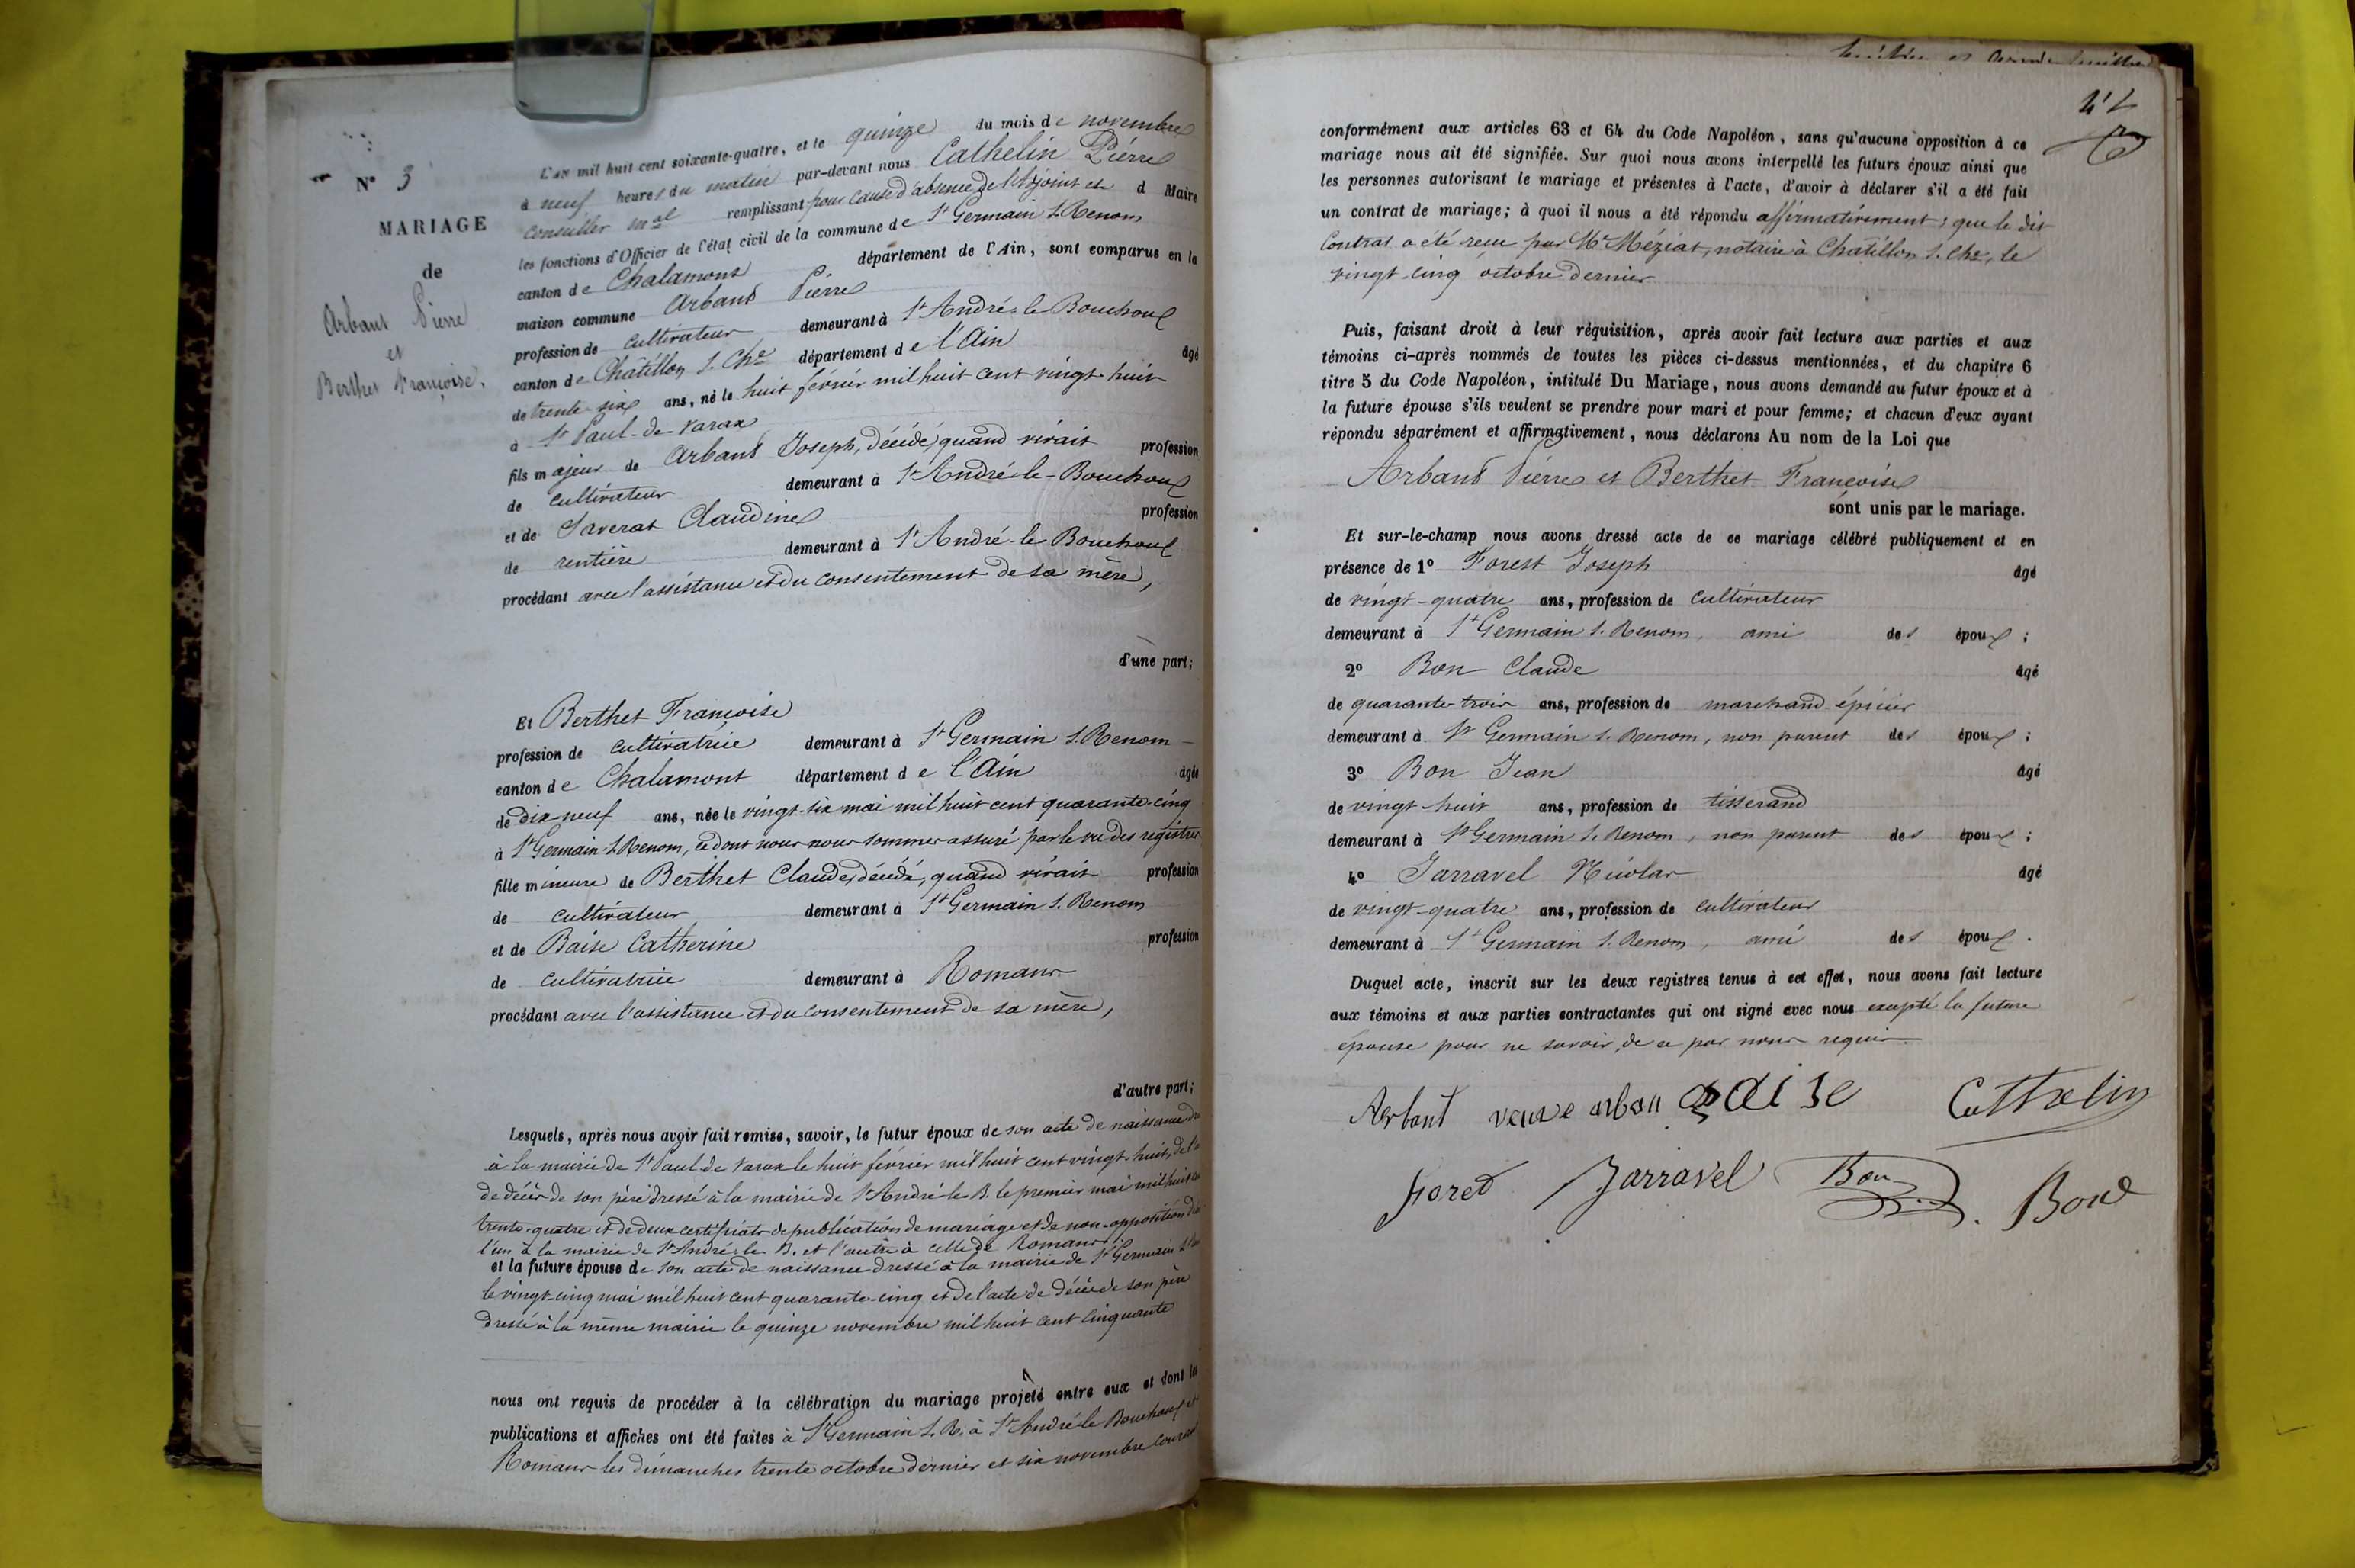 N° 3
MARIAGE
de
Arbant Pierre
et
Berthet Françoise.
L'an mil huit cent soixante-quatre, et le quinze du mois de novembre
à neuf heures du matin par-devant nous Cathelin Pierre
conseiller mal remplissant pour cause d'absence de l'Adjoint et d Maire
les fonctions d'Officier de l'état civil de la commune de St Germain s. Renom
canton de Chalamont département de l'Ain, sont comparus en la
maison commune Arband Pierre
profession de cultivateur demeurant à St André-le-Bouchoux
canton de Châtillon s. Che département de l'Ain âgé
de trente-six ans, né le huit février mil huit cent vingt-huit
à St Paul-de-Varax
fils majeur de Arband Joseph, décédé, quand vivait profession
de cultivateur demeurant à St André-le-Bouchoux
et de Saverat Claudine profession
de rentière demeurant à St André-le-Bouchoux
procédant avec l'assistance et du consentement de sa mère,
d'une part;
Et Berthet Françoise
profession de cultivatrice demeurant à St Germain s. Renom
canton de Chalamont département de l'Ain âgée
de dix-neuf ans, née le vingt-six mai mil huit cent quarante-cinq
à St Germain s. Renom, ce dont nous nous sommes assuré par le vu des registres
fille mineure de Berthet Claude, décédé, quand vivait profession
de cultivateur demeurant à St Germain s. Renom
et de Baise Catherine profession
de cultivatrice demeurant à Romans
procédant avec l'assistance et du consentement de sa mère,
d'autre part;
Lesquels, après nous avoir fait remise, savoir, le futur époux de son acte de naissance
à la mairie de St Paul de Varax le huit février mil huit cent vingt-huit, de
de décès de son père dressé à la mairie de St André-le-B. le premier mai mil huit
trente-quatre et de deux certificats de publication de mariage et de non-opposition
l'un à la mairie de St André-le-B. et l'autre à celle de Romans;
et la future épouse de son acte de naissance dressé à la mairie de St Germain
le vingt-cinq mai mil huit cent quarante-cinq et de l'acte de décès de son père
dressé à la même mairie le quinze novembre mil huit cent cinquante
nous ont requis de procéder à la célébration du mariage projeté entre eux et dont les
publications et affiches ont été faites à St Germain s. R. à St André-le-Bouchoux et
Romans les dimanches trente octobre dernier et six novembre courant
conformément aux articles 63 et 64 du Code Napoléon, sans qu'aucune opposition à ce
mariage nous ait été signifiée. Sur quoi nous avons interpellé les futurs époux ainsi que
les personnes autorisant le mariage et présentes à l'acte, d'avoir à déclarer s'il a été fait
un contrat de mariage; à quoi il nous a été répondu affirmativement, que le dit
Contrat a été reçu par Me Méziat, notaire à Châtillon s. Che, le
vingt-cinq octobre dernier
Puis, faisant droit à leur réquisition, après avoir fait lecture aux parties et aux
témoins ci-après nommés de toutes les pièces ci-dessus mentionnées, et du chapitre 6
titre 5 du Code Napoléon, intitulé Du Mariage, nous avons demandé au futur époux et à
la future épouse s'ils veulent se prendre pour mari et pour femme; et chacun d'eux ayant
répondu séparément et affirmativement, nous déclarons Au nom de la Loi que
Arband Pierre et Berthet Françoise
sont unis par le mariage.
Et sur-le-champ nous avons dressé acte de ce mariage célébré publiquement et en
présence de 1° Forest Joseph âgé
de vingt-quatre ans, profession de cultivateur
demeurant à St Germain s. Renom, ami des époux;
2° Bon Claude âgé
de quarante-trois ans, profession de marchand-épicier
demeurant à St Germain s. Renom, non parent des époux;
3° Bon Jean âgé
de vingt-huit ans, profession de tisserand
demeurant à St Germain s. Renom, non parent des époux;
4° Jarravel Nicolas âgé
de vingt-quatre ans, profession de cultivateur
demeurant à St Germain s. Renom, ami des époux.
Duquel acte, inscrit sur les deux registres tenus à cet effet, nous avons fait lecture
aux témoins et aux parties contractantes qui ont signé avec nous excepté la future
épouse pour ne savoir, de ce par nous requis.
Arbant veuve arban baise Cathelin
Foret Jarravel Bon Bon